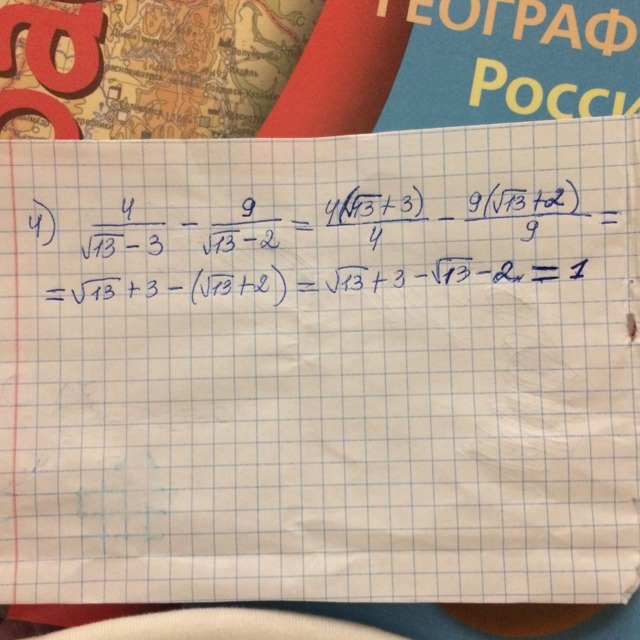 ГЕОГРАФ
Росси
4) 4/(√13 - 3) - 9/(√13 - 2) = 4(√13 + 3)/4 - 9(√13 + 2)/9 =
= √13 + 3 - (√13 + 2) = √13 + 3 - √13 - 2 = 1